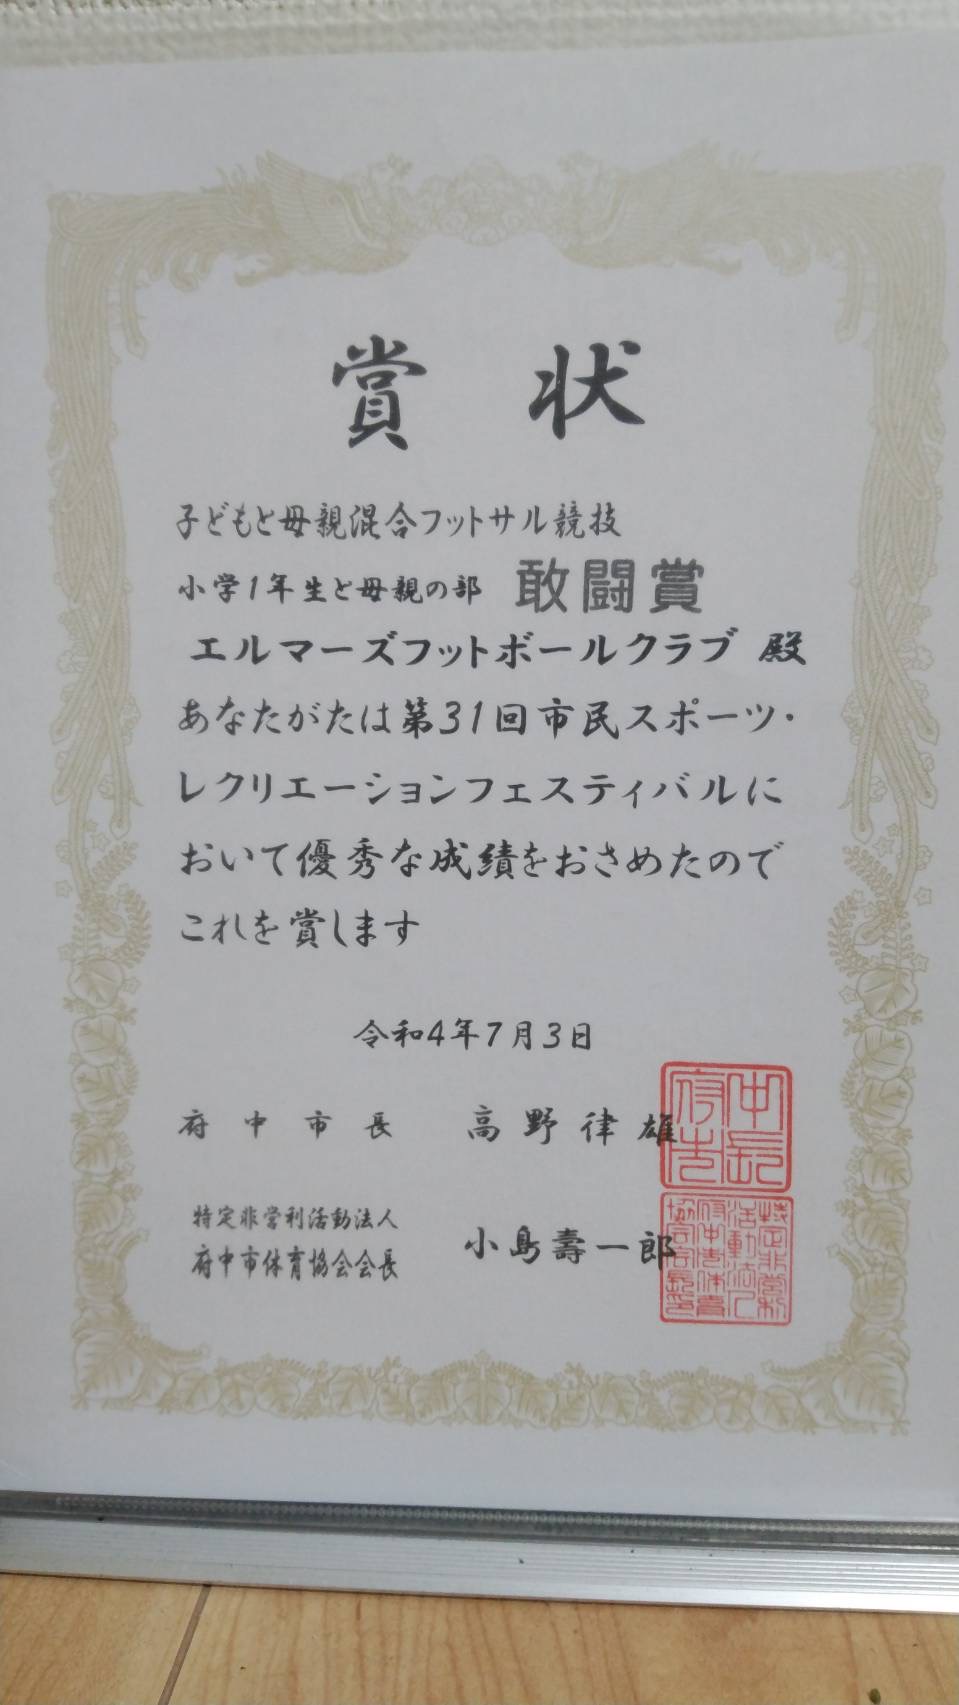 賞状
子どもと母親混合フットサル競技
小学1年生と母親の部 敢闘賞
エルマーズフットボールクラブ 殿
あなたがたは第31回市民スポーツ・
レクリエーションフェスティバルに
おいて優秀な成績をおさめたので
これを賞します
令和4年7月3日
府中市長 高野律雄
府中市長
特定非営利活動法人
府中市体育協会会長 小島壽一郎
特定非営利
活動法人
府中市体育
協会会長印